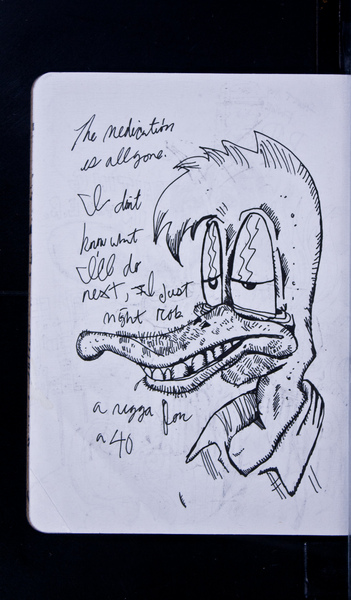 The medication
is all gone.
I don't
know what
I'll do
next, I Just
might rob
a nigga for
a 40